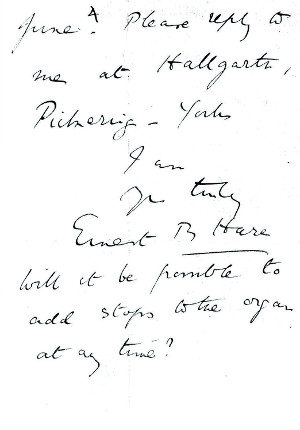 June. Please reply to
me at Hallgarth,
Pickering - Yorks
I am
Yrs truly
Ernest B Hare
Will it be possible to
add stops to the organ
at any time?